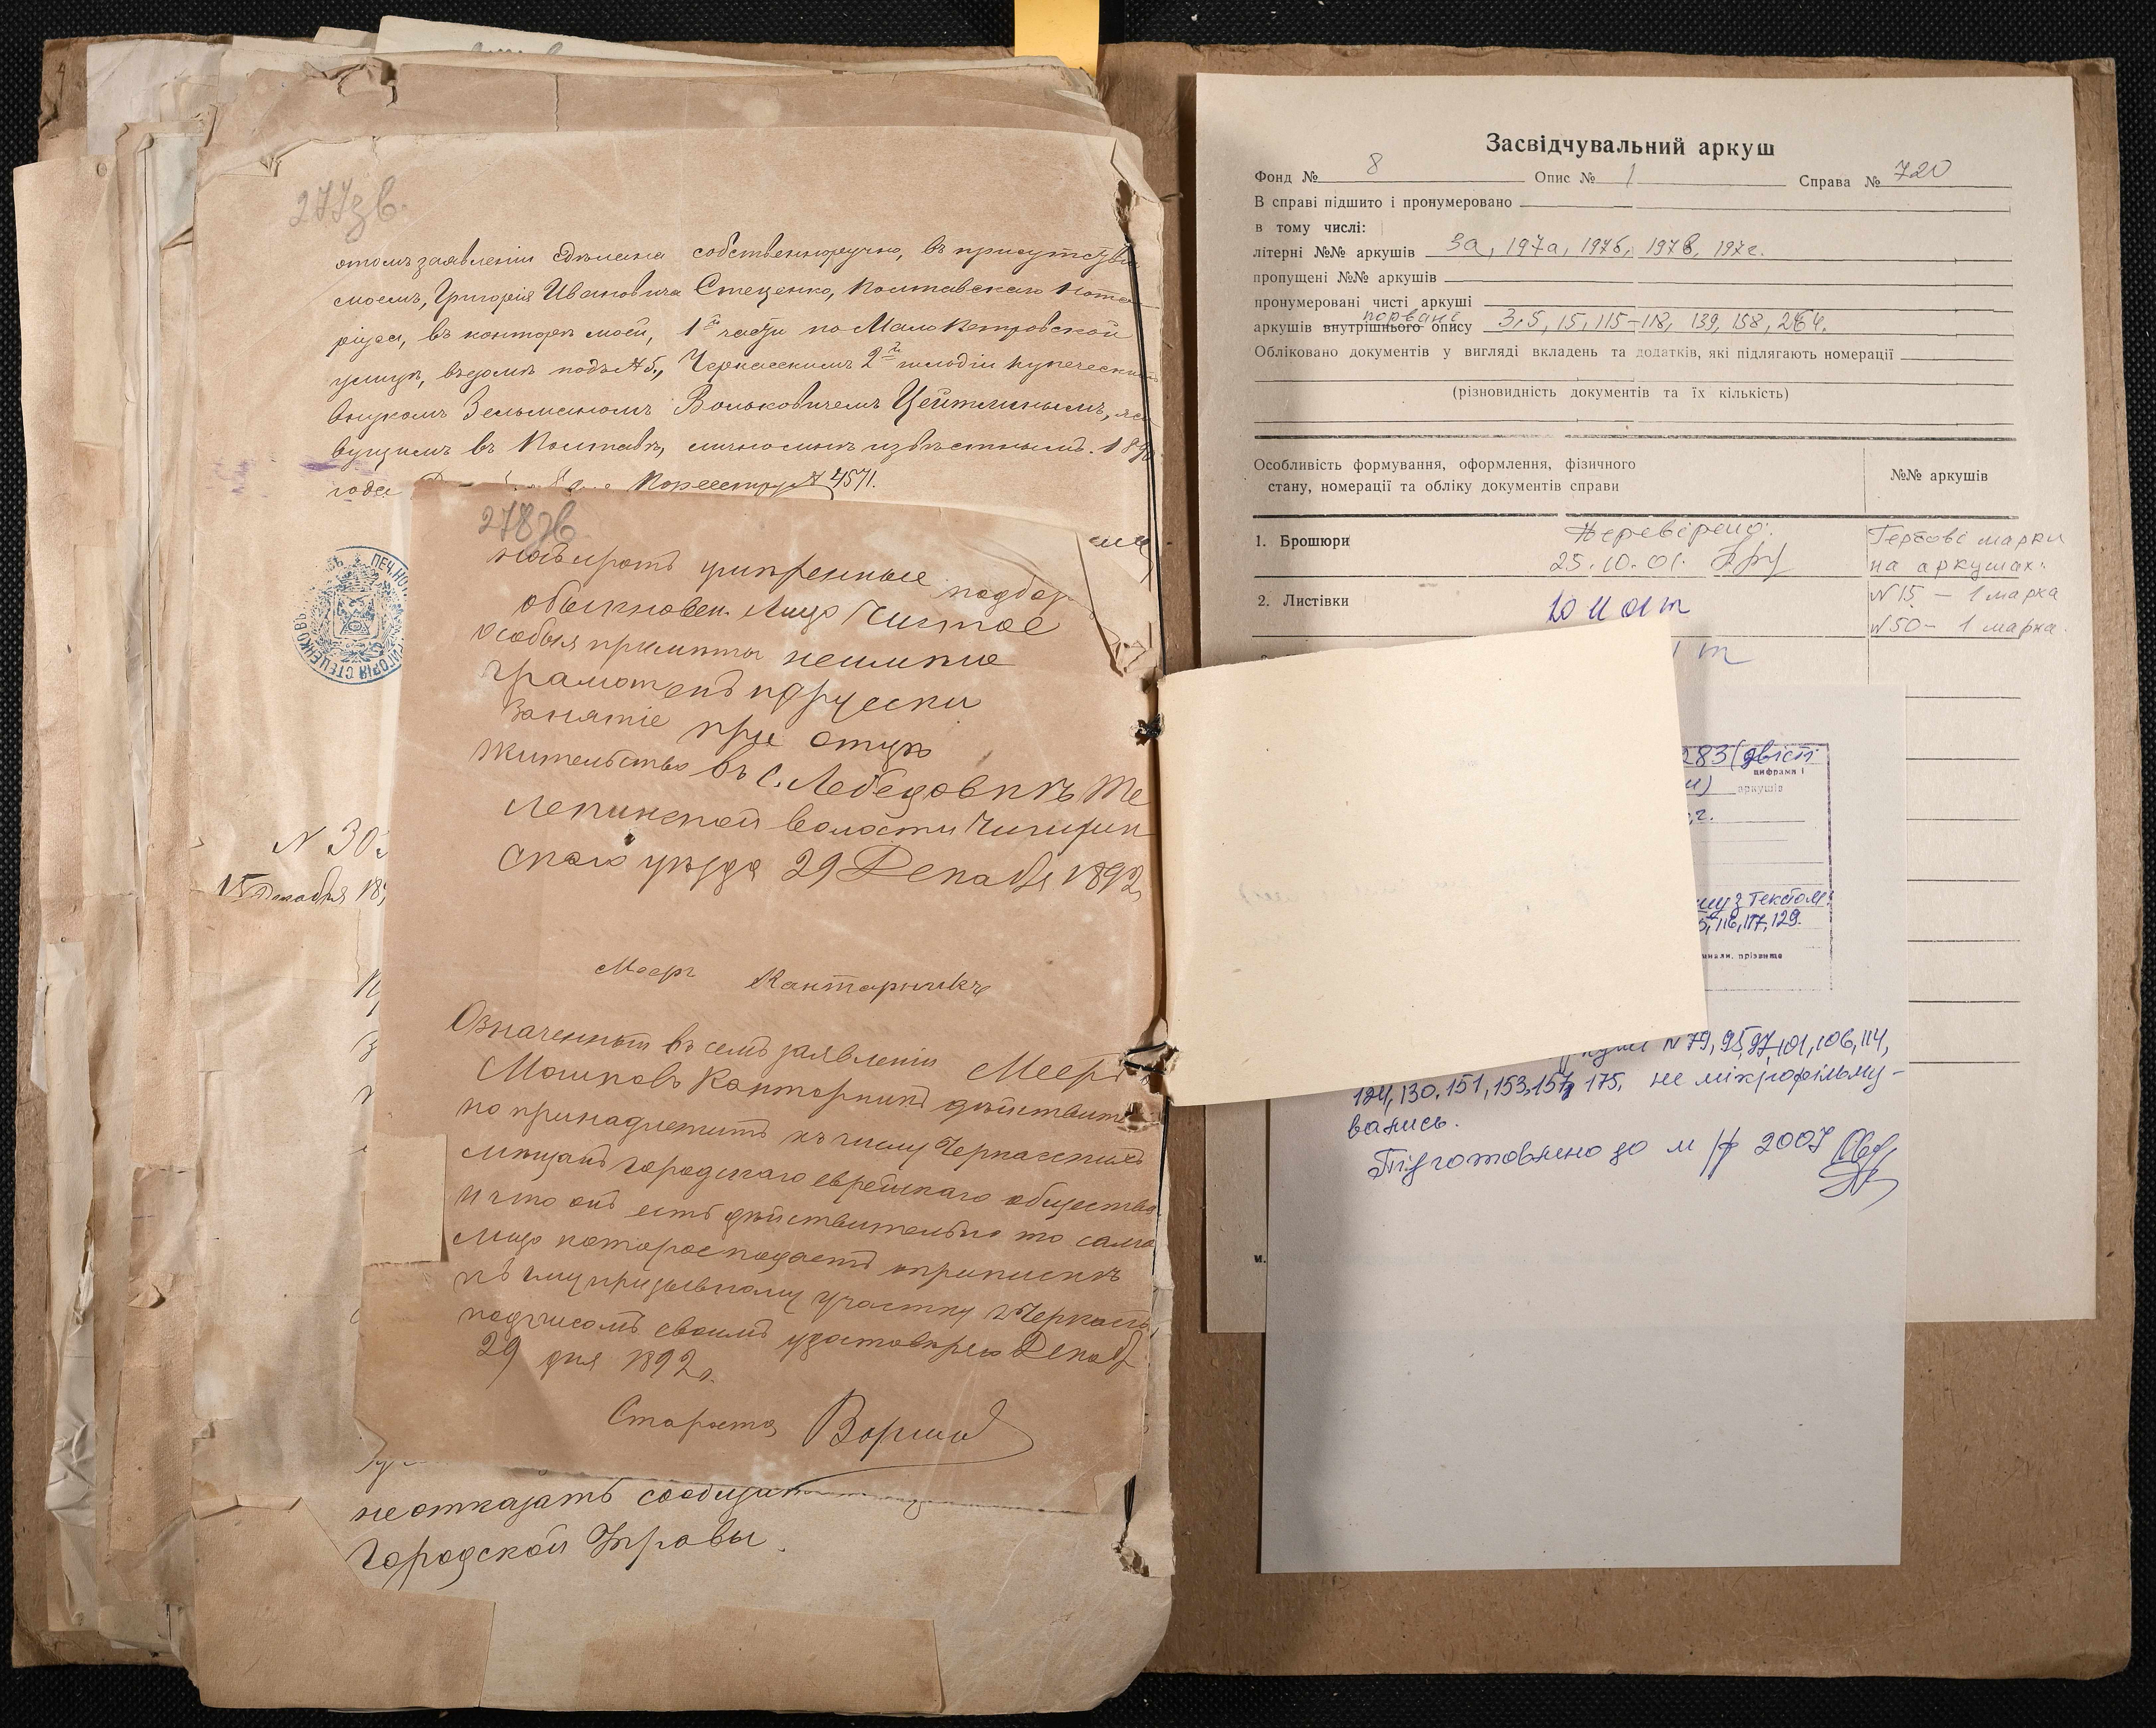 277зв.
этомъ заявленіи сдѣлана собственноручно, въ присутствіи
моемъ, Григорія Ивановича Стеценко, Полтавскаго Нота-
ріуса, въ конторѣ моей, 1й части по Мало Петровской
улицѣ, въ домѣ подъ № 5, Черкасскимъ 2й гильдіи купеческимъ
внукомъ Зельманомъ Вольковичемъ Цейтлинымъ, жи
вущимъ въ Полтавѣ, лично мнѣ извѣстнымъ. 189
года По реестру № 4571.
278зв
носъ и ротъ умѣренные подбор
обыкновен. лицо чистое
особыя примѣты неимѣю
грамотенъ порусски
Занятіе при отцѣ
жительство въ с. Лебедовкѣ Те
лепинской волости Чигирин
скаго уѣзда 29 Декабря 1892
Мееръ Кантарникъ
Означенный въ семъ заявленіи Мееръ
Мошковъ Канторникъ дѣйствитель
но принадлежитъ къ числу Черкасскихъ
мѣщанъ городскаго еврейскаго общества
и что онъ есть дѣйствительно то само
лицо которое подаетъ о припискѣ
къ призывному участку г Черкассъ
подписомъ своимъ удостовѣряю Декабр
29 дня 1892 г.
Староста
N 30
15 Декабря 18
не отказать сообщить
Городской Управы.
ПЕЧ. НО
ГРИГОРІЯ СТЕЦЕНКОВЪ
Засвідчувальний аркуш
Фонд № 8 Опис № 1 Справа № 720
В справі підшито і пронумеровано
в тому числі:
літерні №№ аркушів 3а, 197а, 197б, 197в, 197г.
пропущені №№ аркушів
пронумеровані чисті аркуші
порвані
аркушів внутрішнього опису 3,5, 15, 115-118, 139, 158, 264.
Обліковано документів у вигляді вкладень та додатків, які підлягають номерації
(різновидність документів та їх кількість)
Особливість формування, оформлення, фізичного
стану, номерації та обліку документів справи
№№ аркушів
1. Брошюри
Перевірено:
25.10.01.
Гербові марки
на аркушах:
N 15 - 1 марка
N 50 - 1 марка.
2. Листівки
283 (двісті
цифрами і
аркушів
з текстом:
116, 117, 129.
ціали, прізвище
N 79, 95, 97, 101, 106, 114,
124, 130, 151, 153, 157, 175, не мікрофільму-
вались.
Підготовлено до м/ф 2007